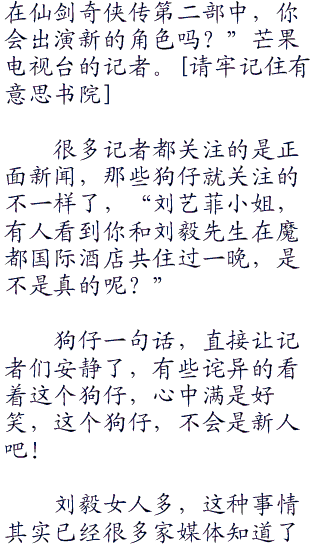 在仙剑奇侠传第二部中，你
会出演新的角色吗？”芒果
电视台的记者。[请牢记住有
意思书院]
很多记者都关注的是正
面新闻，那些狗仔就关注的
不一样了，“刘艺菲小姐，
有人看到你和刘毅先生在魔
都国际酒店共住过一晚，是
不是真的呢？”
狗仔一句话，直接让记
者们安静了，有些诧异的看
着这个狗仔，心中满是好
笑，这个狗仔，不会是新人
吧！
刘毅女人多，这种事情
其实已经很多家媒体知道了